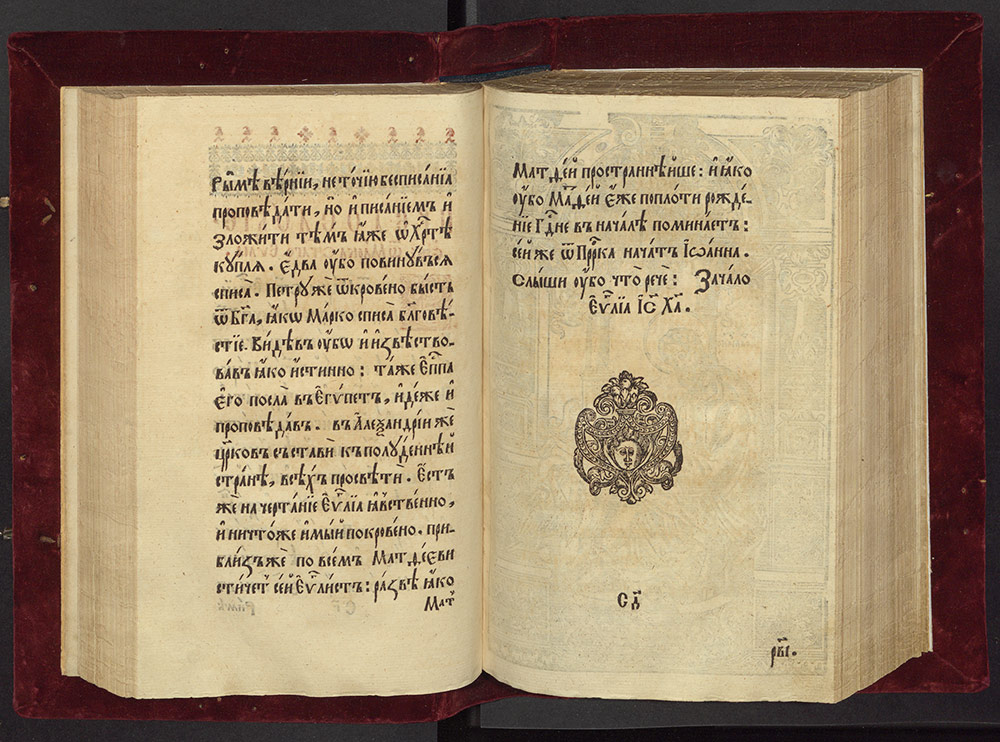 Ры́мѣ вѣ́рнїи, неточі́ю бесписа́нїа
проповѣ́дати, но̀ и҆писа́нїемъ и҆
зложи́ти тѣ́мъ ꙗ҆́же ѡ҆хр҇тѣ̀
кꙋ́плѧ. Е҆два̀ ᲂу҆́бо повинꙋ́въсѧ
списа̀. Петрꙋ́же ѿкрове́но бы́сть
ѿбг҃а, ꙗ҆́кѡ Ма́рко списа̀ бл҃говѣ́-
стїе. Ви́дѣвъ ᲂу҆́бѡ и҆и҆звѣ́ство-
вавъ ꙗ҆́ко и҆́стинно: та́же є҆п҇па
є҆го̀ посла̀ въє҆гѵ́петъ, и҆дѣ́же и҆
проповѣ́давъ. въА҆леѯандрі́и же
цр҃ковъ съста́ви къполꙋ́деннѣй
странѣ̀, всѣ́хъ просвѣтѝ. Е҆́стъ
же начерта́нїе є҆ѵ҃лїа ꙗ҆́вственно,
и҆ничто́же и҆мы́й покрове́но. при-
бли́зъже по всемъ Матѳе́еви
сти́чет се́й є҆ѵ҃ли́стъ: ра́звѣ ꙗ҆́ко
Матѳ
Матѳе́й простра́ннѣйше: и҆ ꙗ҆́ко
ᲂу҆́бо Маѳе́й є҆́же попло́ти рожде́-
нїе Гд҇не въ нача́лѣ помина́етъ:
се́йже ѿ Прⷪ҇рка нача́тъ І҆ѡа́нна.
Слы́ши ᲂу҆́бо что̀ речѐ: Зача́ло
є҆ѵ҃лїа І҆с҃ Ха҃.
сд҃
рв҃і.